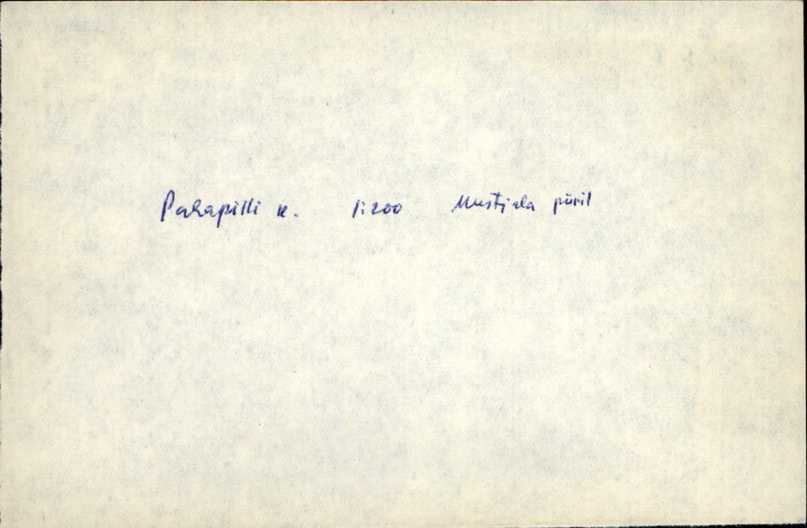 Pahapilli k. 1:200 Mustjala piiril